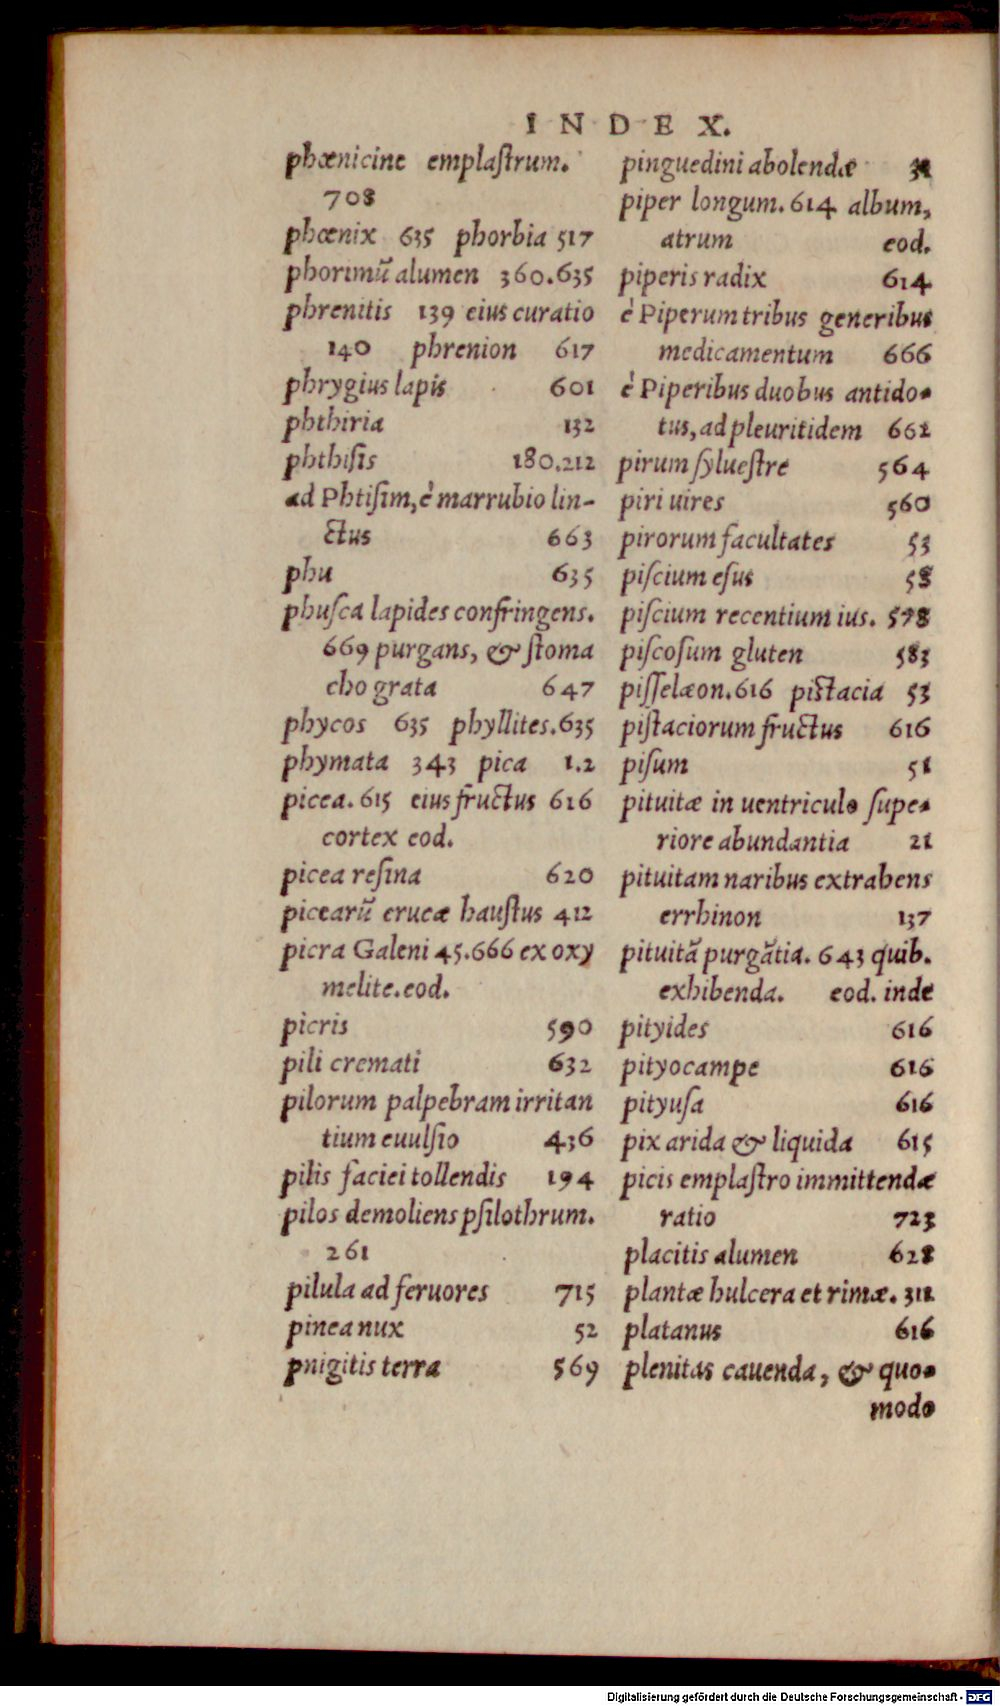 INDEX.
phœnicine emplaſtrum.
708
phœnix 635 phorbia 517
phorimũ alumen 360.635
phrenitis 139 eius curatio
140 phrenion 617
phrygius lapis 601
phthiria 132
phthiſis 180.212
ad Phtiſim, è marrubio lin-
ctus 663
phu 635
phuſca lapides confringens.
669 purgans, & ſtoma
cho grata 647
phycos 635 phyllites.635
phymata 343 pica 1.2
picea. 615 eius fructus 616
cortex eod.
picea reſina 620
picearũ erucæ hauſtus 412
picra Galeni 45.666 ex oxy
melite.eod.
picris 590
pili cremati 632
pilorum palpebram irritan
tium euulſio 436
pilis faciei tollendis 194
pilos demoliens pſilothrum.
261
pilula ad feruores 715
pinea nux 52
pnigitis terra 569
pinguedini abolendæ
piper longum. 614 album,
atrum eod.
piperis radix 614
è Piperum tribus generibus
medicamentum 666
è Piperibus duobus antido-
tus, ad pleuritidem 662
pirum ſylueſtre 564
piri uires 560
pirorum facultates 53
piſcium eſus 58
piſcium recentium ius. 578
piſcoſum gluten 583
piſſelæon.616 piſtacia 53
piſtaciorum fructus 616
piſum 51
pituitæ in uentriculo ſupe-
riore abundantia 21
pituitam naribus extrahens
errhinon 137
pituitã purgãtia. 643 quib.
exhibenda. eod. inde
pityides 616
pityocampe 616
pityuſa 616
pix arida & liquida 615
picis emplaſtro immittendæ
ratio 723
placitis alumen 628
plantæ hulcera et rimæ. 311
platanus 616
plenitas cauenda, & quo-
modo
Digitalisierung gefördert durch die Deutsche Forschungsgemeinschaft - DFG